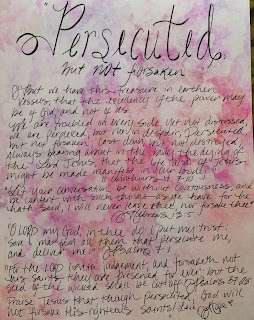 "Persecuted,
but not forsaken
But we have this treasure in earthen
vessels, that the excellency of the power may
be of God, and not of us.
We are troubled on every side, yet not distressed;
we are perplexed, but not in despair; Persecuted,
but not forsaken; cast down, but not destroyed;
Always bearing about in the body the dying of
the Lord Jesus, that the life also of Jesus
might be made manifest in our body.
4:7-10
"Let your conversation be without covetousness; and
be content with such things as ye have: for he
hath said, I will never leave thee, nor forsake thee."
Hebrews 13:5
"O LORD my God, in thee do I put my trust:
save me from all them that persecute me,
and deliver me:" Psalms 7:1
"For the LORD loveth judgement, and forsaketh not
his saints; they are preserved for ever: but the
seed of the wicked shall be cut off." Psalms 37:28
Praise Jesus that though persecuted, God will
not forsake his righteous saints!